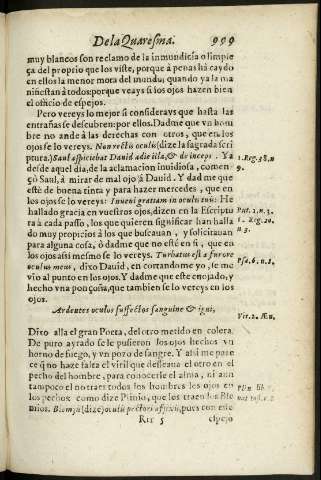 De la Quaresma. 999
muy blancos son reclamo de la inmundicia o limpie
ça del proprio que los viste, porque à penas ha caydo
en ellos la menor mora del mundo, quando ya la ma
nifiestan à todos: porque veays si los ojos hazen bien
el officio de espejos.
Pero vereys lo mejor si consideravs que hasta las
entrañas se descubren: por ellos. Dadme que vn hom
bre no ande à las derechas con otros, que en los
ojos se lo vereys: Non rectis oculis (dize la sagrada scri
ptura.) Saul aspiciebat Dauid à die illa, & deinceps. Ya
1. Reg. 18. n
9.
desde aquel dia, de la aclamacion inuidiosa, comen
çò Saul, à mirar de mal ojo à Dauid. Y dad me que
estè de buena tinta y para hazer mercedes, que en
los ojos se lo vereys: Inueni gratiam in oculis tuis: He
hallado gracia en vuestros ojos, dizen en la Escriptu
ra à cada passo, los que quieren significar han halla
do muy propicios à los que buscauan, y solicitauan
para alguna cosa, ò dadme que no estè en si, que en
los ojos assi mesmo se lo vereys. Turbatus est à furore
oculus meus, dixo Dauid, en cortandome yo, se me
Psa. 6. n. 8.
viò al punto en los ojos. Y dadme que este enojado, y
hecho vna ponçoña, que tambien se lo vereys en los
ojos.
Ardentes oculos suffectos sanguine & igni,
Vir. 2. Æn.
Dixo alla el gran Poeta, del otro metido en colera.
De puro ayrado se le pusieron los ojos hechos vn
horno de fuego, y vn pozo de sangre. Y ahi me pare
ce q̃ no haze falta el viril que desseaua el otro en el
pecho del hombre, para conocerle el alma, ni aun
tampoco el no traer todos los hombres los ojos en
los pechos como dize Plinio, que los traen los Ble
mios. Blemijs (dize) oculi pectori affixis, pues con este
Rrr 5 espejo